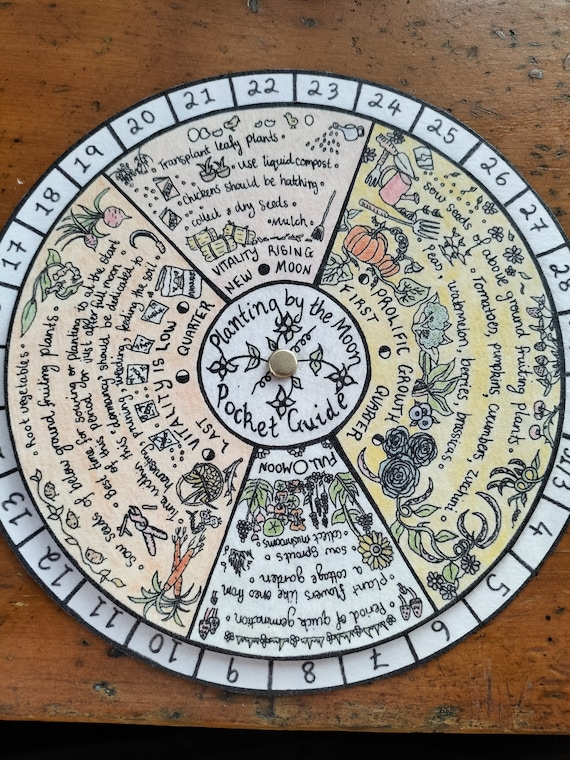 17
18
19
20
21
22
23
24
25
26
27
28
3
4
5
6
7
8
9
10
11
12
13
Planting by the Moon
Pocket Guide
Transplant leafy plants •
• use liquid compost •
• chickens should be hatching •
collect & dry seeds •
• mulch •
VITALITY RISING
NEW MOON
sow seeds of above ground fruiting plants.
tomatoes, pumpkins, cucumber, zucchini
watermelon, berries, brassicas
PROLIFIC GROWTH
FIRST QUARTER
FULL MOON
• collect mushrooms
• sow sprouts •
• plant flowers like ones from
a cottage garden •
• Period of quick germination •
• sow seeds of below ground fruiting plants • Root vegetables •
Best time for sowing or planting is at the start
of this period or just after full moon •
Time within this dormancy should be dedicated to
harvesting, pruning, weeding, feeding the soil
VITALITY IS LOW
LAST QUARTER